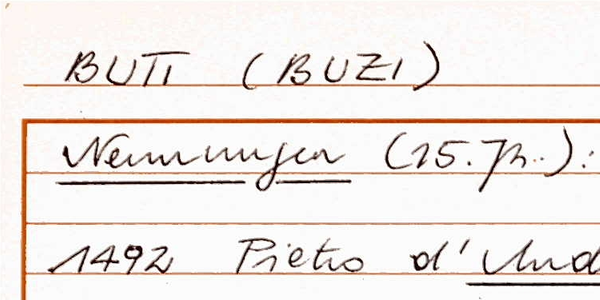 BUTI (BUZI)
Nennungen (15. Jh..):
1492 Pietro d'And